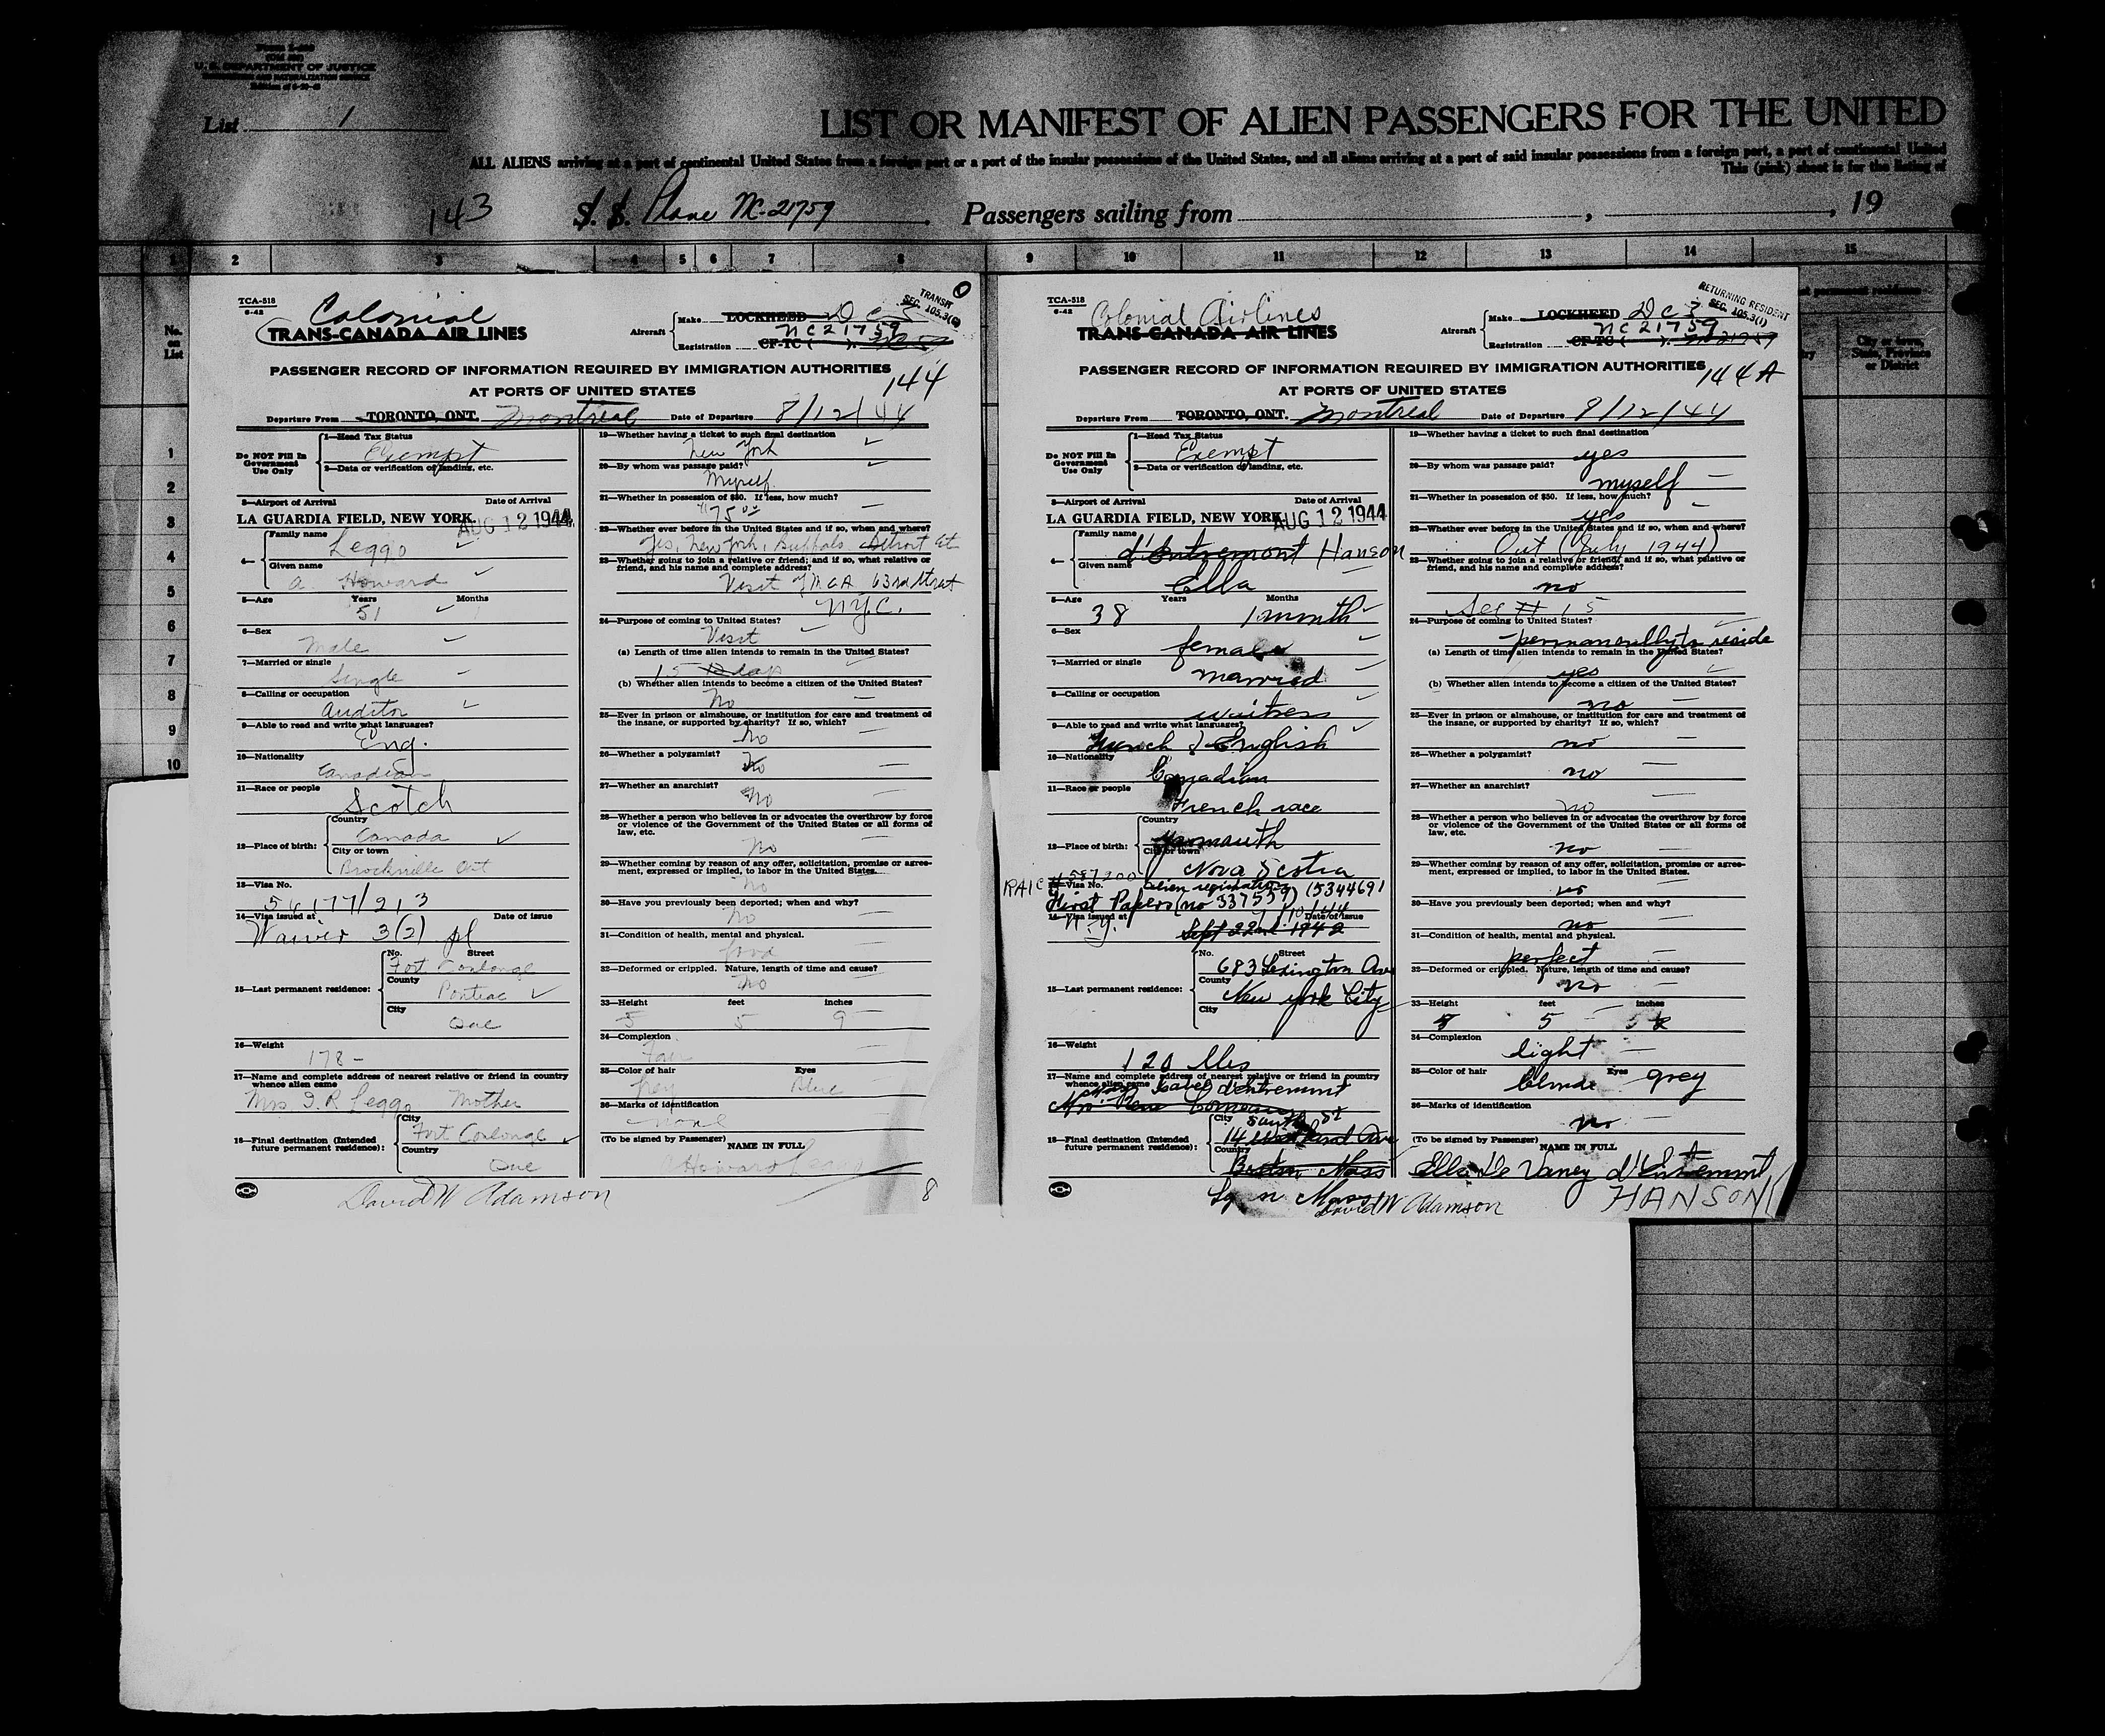 U. S. DEPARTMENT OF JUSTICE
List 1
LIST OR MANIFEST OF ALIEN PASSENGERS FOR THE UNITED
ALL ALIENS arriving at a port of continental United States from a foreign port or a port of the insular possessions of the United States, and all aliens arriving at a port of said insular possessions from a foreign port, a port of continental United
This (pink) sheet is for the listing of
143 S. S. Plane NC-21759 Passengers sailing from , , 19
1 2 3 4 5 6 7 8 9 10 11 12 13 14 15
No. on List
1
2
3
4
5
6
7
8
9
10
City or town, State, Province or District
TCA-518
6-42
Colonial
TRANS-CANADA AIR LINES
TRANSIT
SEC. 105.3(
Aircraft
Make LOCKHEED DC
NC21759
Registration CF-TC ( ).
PASSENGER RECORD OF INFORMATION REQUIRED BY IMMIGRATION AUTHORITIES
AT PORTS OF UNITED STATES
144
Departure From TORONTO, ONT. Montreal Date of Departure 8/12/44
Do NOT Fill In Government Use Only
1—Head Tax Status
Exempt
2—Data or verification of landing, etc.
3—Airport of Arrival Date of Arrival
LA GUARDIA FIELD, NEW YORK AUG 12 1944
4—
Family name
Leggo
Given name
A. Howard
5—Age Years Months
51
6—Sex
Male
7—Married or single
Single
8—Calling or occupation
Auditor
9—Able to read and write what languages?
Eng.
10—Nationality
Canadian
11—Race or people
Scotch
12—Place of birth:
Country
Canada
City or town
Brockville Ont
13—Visa No.
56177/213
14—Visa issued at Date of issue
Waiver 3(2) pl
15—Last permanent residence:
No. Street
Fort Coulonge
County
Pontiac
City
Que
16—Weight
178
17—Name and complete address of nearest relative or friend in country whence alien came
Mrs I. R Leggo Mother
18—Final destination (Intended future permanent residence):
City
Fort Coulonge
Country
Que
David W Adamson
19—Whether having a ticket to such final destination
New York
20—By whom was passage paid?
Myself
21—Whether in possession of $50. If less, how much?
$75 00
22—Whether ever before in the United States and if so, when and where?
Yes, New York, Buffalo Detroit et
23—Whether going to join a relative or friend; and if so, what relative or friend, and his name and complete address?
Visit YMCA 63rd Street
N.Y.C.
24—Purpose of coming to United States?
Visit
(a) Length of time alien intends to remain in the United States?
15 Days
(b) Whether alien intends to become a citizen of the United States?
No
25—Ever in prison or almshouse, or institution for care and treatment of the insane, or supported by charity? If so, which?
No
26—Whether a polygamist?
No
27—Whether an anarchist?
No
28—Whether a person who believes in or advocates the overthrow by force or violence of the Government of the United States or all forms of law, etc.
No
29—Whether coming by reason of any offer, solicitation, promise or agreement, expressed or implied, to labor in the United States.
No
30—Have you previously been deported; when and why?
No
31—Condition of health, mental and physical.
Good
32—Deformed or crippled. Nature, length of time and cause?
No
33—Height feet inches
5 5 9
34—Complexion
Fair
35—Color of hair Eyes
Grey Blue
36—Marks of identification
none
(To be signed by Passenger) NAME IN FULL
A Howard Leggo
8
TCA-518
6-42
Colonial Airlines
TRANS-CANADA AIR LINES
RETURNING RESIDENT
SEC. 105.3(1)
Aircraft
Make LOCKHEED DC3
NC21759
Registration CF-TC ( ). NC21759
PASSENGER RECORD OF INFORMATION REQUIRED BY IMMIGRATION AUTHORITIES
AT PORTS OF UNITED STATES
144A
Departure From TORONTO, ONT. Montreal Date of Departure 8/12/44
Do NOT Fill In Government Use Only
1—Head Tax Status
Exempt
2—Data or verification of landing, etc.
3—Airport of Arrival Date of Arrival
LA GUARDIA FIELD, NEW YORK AUG 12 1944
4—
Family name
d'Entremont Hanson
Given name
Ella
5—Age Years Months
38 1 month
6—Sex
female
7—Married or single
married
8—Calling or occupation
waitress
9—Able to read and write what languages?
French & English
10—Nationality
Canadian
11—Race or people
French race
12—Place of birth:
Country
Yarmouth
City or town
Nova Scotia
RAIC # 587200
13—Visa No. alien registration (5344691
First Papers (no 337559)
14—Visa issued at Date of issue
N.Y. Sept 22nd 1942
15—Last permanent residence:
No. Street
683 Lexington Ave
County
New York City
City
16—Weight
120 lbs
17—Name and complete address of nearest relative or friend in country whence alien came
Isabel d'entremont
18—Final destination (Intended future permanent residence):
City
14
Country
Boston Mass
Mass
David W Adamson
19—Whether having a ticket to such final destination
yes
20—By whom was passage paid?
myself
21—Whether in possession of $50. If less, how much?
yes
22—Whether ever before in the United States and if so, when and where?
Out (July 1944)
23—Whether going to join a relative or friend; and if so, what relative or friend, and his name and complete address?
no
See # 15
24—Purpose of coming to United States?
permanently to reside
(a) Length of time alien intends to remain in the United States?
yes
(b) Whether alien intends to become a citizen of the United States?
no
25—Ever in prison or almshouse, or institution for care and treatment of the insane, or supported by charity? If so, which?
no
26—Whether a polygamist?
no
27—Whether an anarchist?
no
28—Whether a person who believes in or advocates the overthrow by force or violence of the Government of the United States or all forms of law, etc.
no
29—Whether coming by reason of any offer, solicitation, promise or agreement, expressed or implied, to labor in the United States.
no
30—Have you previously been deported; when and why?
no
31—Condition of health, mental and physical.
perfect
32—Deformed or crippled. Nature, length of time and cause?
no
33—Height feet inches
5
34—Complexion
light
35—Color of hair Eyes
blonde grey
36—Marks of identification
no
(To be signed by Passenger) NAME IN FULL
Ella De Vaney d'Entremont
HANSON